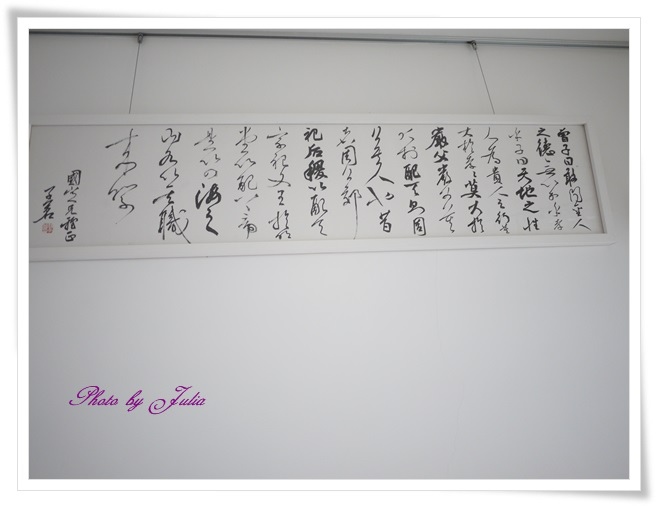 曾子曰敢問聖人
之德無以加於孝
乎子曰天地之性
人為貴人之行莫
大於孝孝莫大於
嚴父嚴父莫大
於配天則周
公其人也昔
者周公郊
祀后稷以配天
宗祀文王於明
堂以配上帝
是以四海之
內各以其職
來祭
Photo by Julia